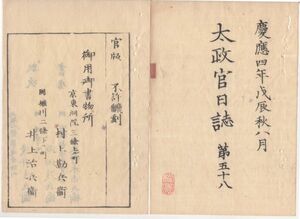 慶應四年戊辰秋八月
太政官日誌 第五十八
官版 不許翻刻
御用御書物所
京東洞院三條上ル町
村上勘兵衞
同堀川二條下ル町
井上治兵衞